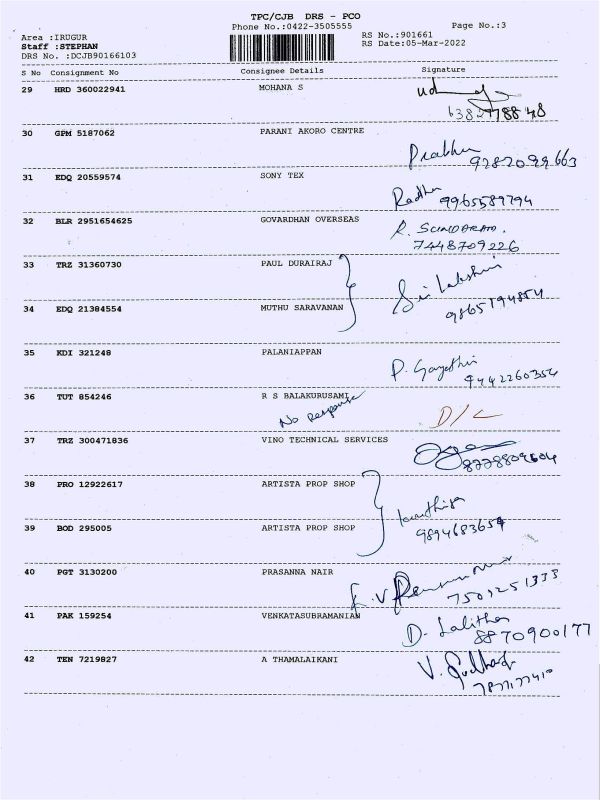 TPC/CJB DRS - PCO
Phone No.:0422-3505555
Page No.:3
Area :IRUGUR
RS No.:901661
Staff :STEPHAN
RS Date:05-Mar-2022
DRS No. :DCJB90166103
S No Consignment No Consignee Details Signature
29 HRD 360022941 MOHANA S
30 GPM 5187062 PARANI AKORO CENTRE
Prabhu 9282099663
31 EDQ 20559574 SONY TEX
Radha 9965589794
32 BLR 2951654625 GOVARDHAN OVERSEAS
R. SUNDARAM.
7448709226
33 TRZ 31360730 PAUL DURAIRAJ
Sri Lakshmi
34 EDQ 21384554 MUTHU SARAVANAN
35 KDI 321248 PALANIAPPAN
P. Gayathri
9442260354
36 TUT 854246 R S BALAKURUSAMI
No Response D/L
37 TRZ 300471836 VINO TECHNICAL SERVICES
8778809604
38 PRO 12922617 ARTISTA PROP SHOP
39 BOD 295005 ARTISTA PROP SHOP
9894683654
40 PGT 3130200 PRASANNA NAIR
7501251333
41 PAK 159254 VENKATASUBRAMANIAN
D. Lalitha
8870900177
42 TEN 7219827 A THAMALAIKANI